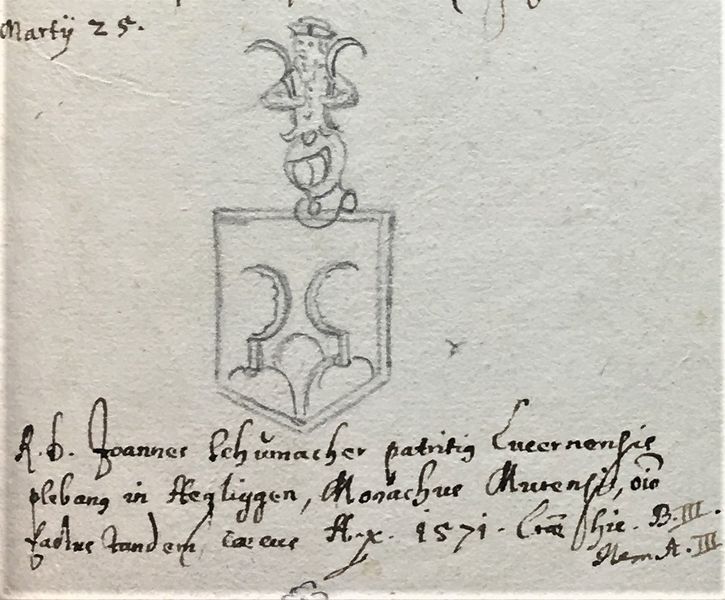 Martÿ 25.
R.D. Joannes Schŭmacher patritiꝰ Lucernensis
plebanꝰ in Aegliggen, Monachus Murensis, oĩo
factus tandem cæcus A.x. 1571. hic. B.III.
Item A.III